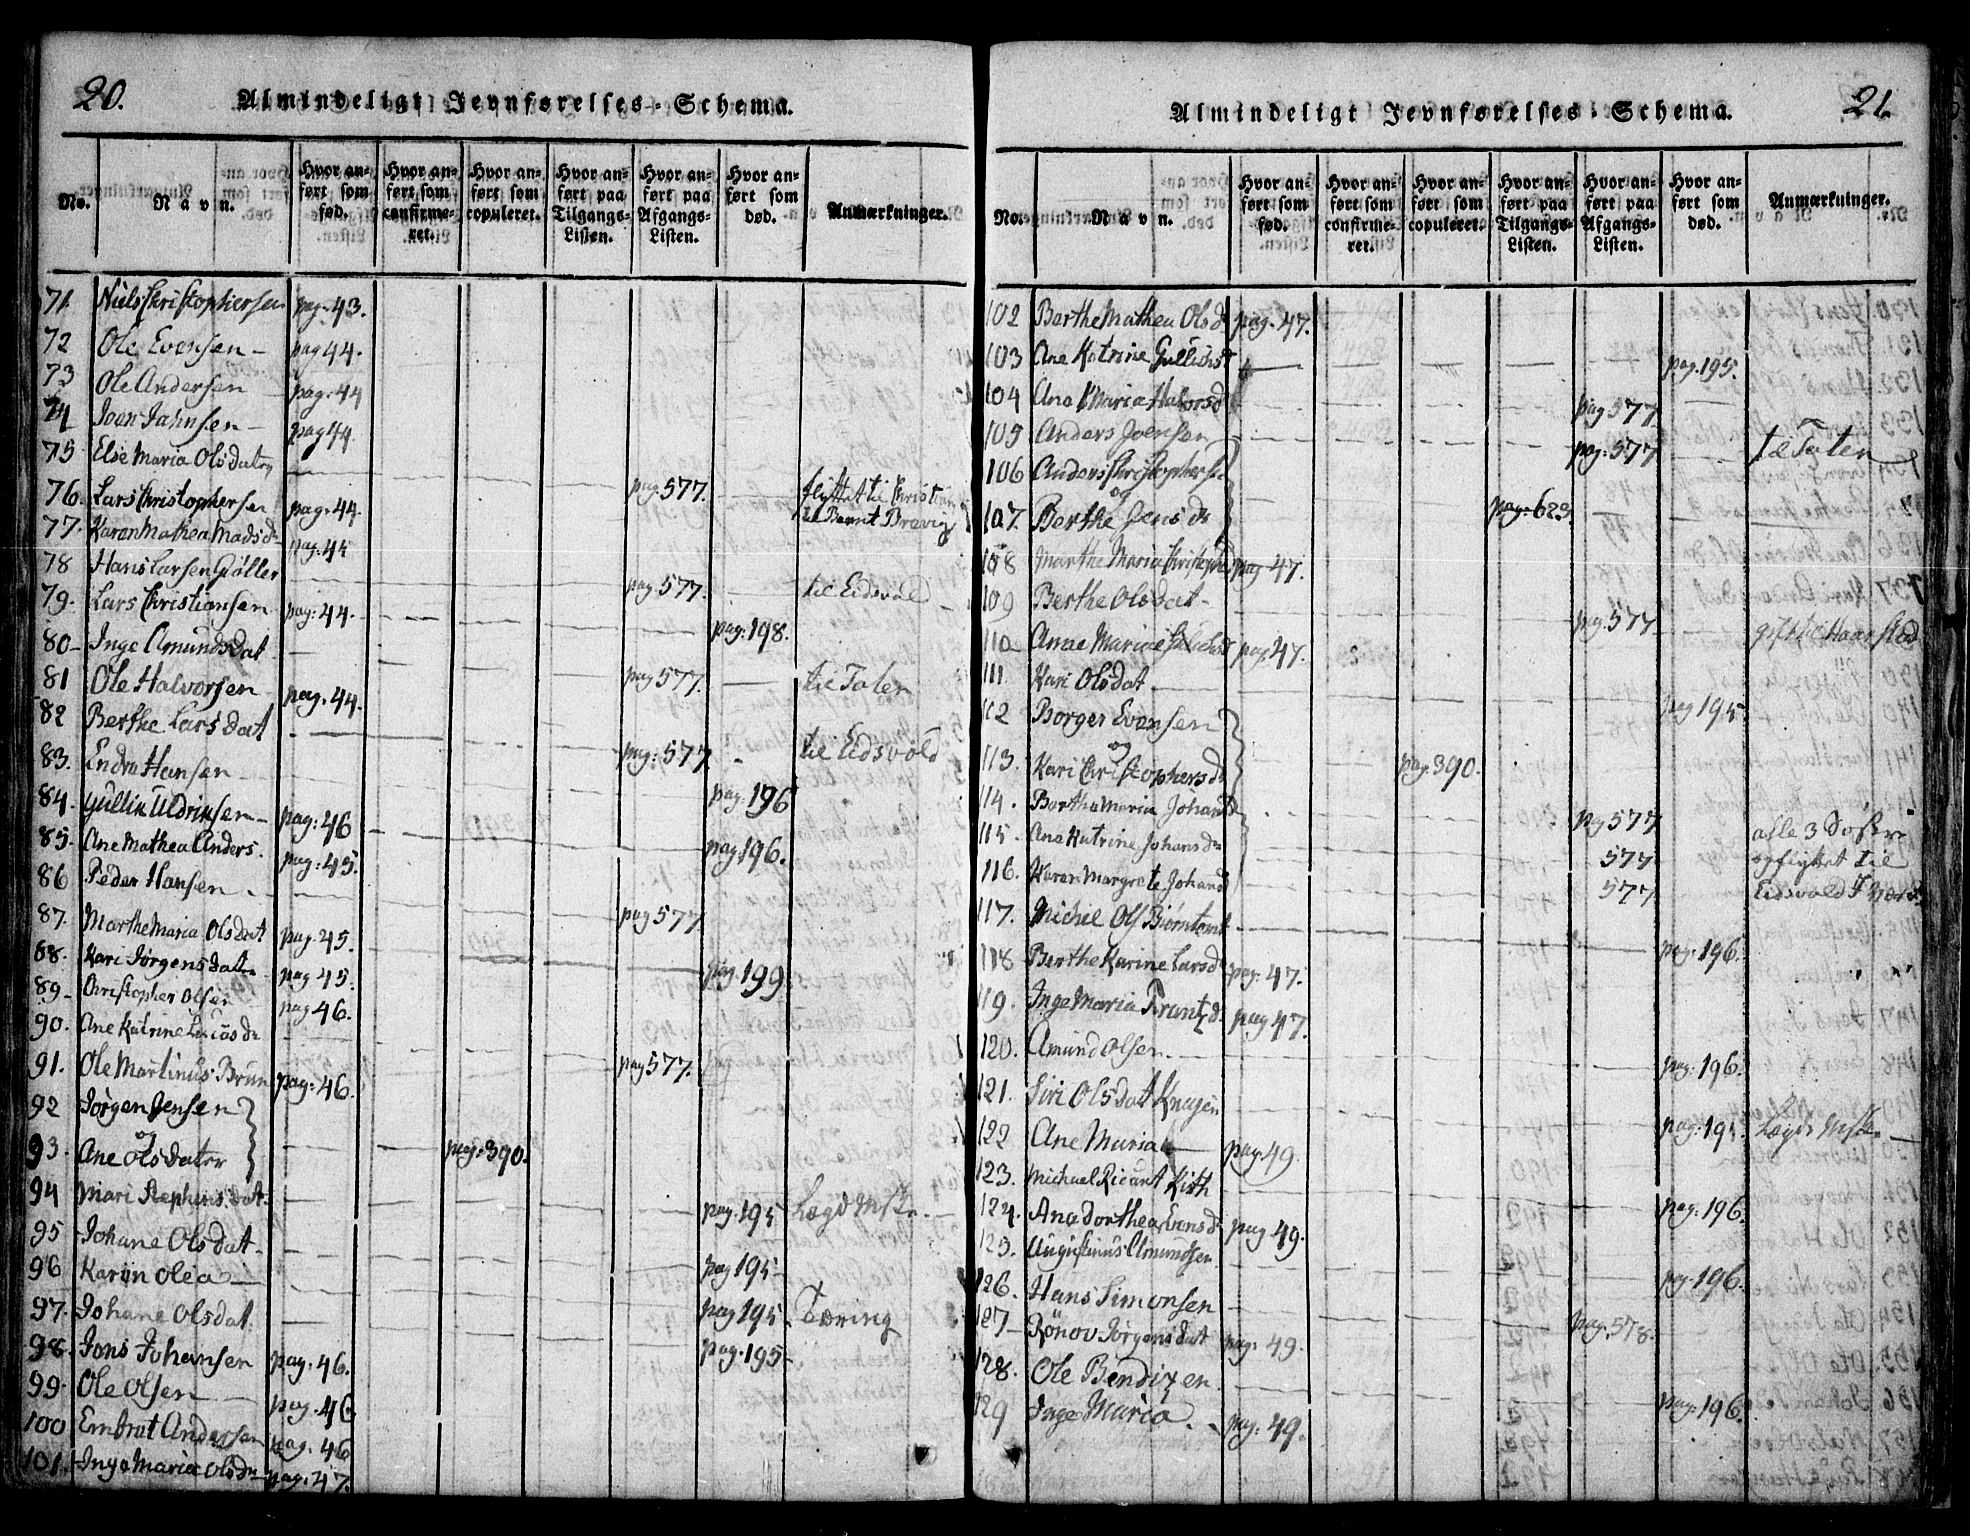 20.
Almindeligt Jevnførelses-Schema.
No. Navn. Hvor anført som fød. Hvor anført som confirmeret. Hvor anført som copuleret. Hvor anført paa Tilgangs-Listen. Hvor anført paa Afgangs-Listen. Hvor anført som død. Anmærkninger.
71 Niels Christophersen pag. 43.
72 Ole Evensen pag 44.
73 Ole Andersen pag: 44
74 Joen Jahnsen pag 44.
75 Else Maria Olsdater pag 577. flyttet til
76. Lars Christophersen pag. 44.
77. Karen Mathea Madsd pag. 44
78 Hans Larsen Gjøller pag 577. til Eidsvol
79. Lars Christiansen pag: 44. pag: 198.
80 Inge Amundsdat pag 577. til Toten
81 Ole Halvorsen pag. 44.
82 Berthe Larsdat pag: 577. til Eidsvold
83. Endre Hansen pag. 196
84. Gullik Uldriksen pag: 46 pag 196.
85. Ane Mathea Anders. pag: 45.
86 Peder Hansen pag 577.
87. Marthe Maria Olsdat pag. 45.
88. Kari Jørgensdatr pag 45. pag. 199
89 Christopher Olsen pag 46.
90. Ane Katrine pag 577.
91. Ole Martinus Brun pag: 46.
92 Jørgen Jensen
og
93. Ane Olsdater pag. 390.
94 Mari Stephensdat. pag. 195 Lægd
95 Johane Olsdat pag 195
96 Karen Olea pag 195.
97. Johane Olsdat. pag. 195
98. Jens Johansen pag. 46.
99. Ole Olsen pag. 46
100 Embret Andersen pag. 46
101. Inge Maria Olsdr pag. 47.
21.
Almindeligt Jevnførelses-Schema.
No. Navn. Hvor anført som fød. Hvor anført som confirmeret. Hvor anført som copuleret. Hvor anført paa Tilgangs-Listen. Hvor anført paa Afgangs-Listen. Hvor anført som død. Anmærkninger.
102 Berthe Mathea Olsd pag. 47.
103 Ane Katrine Gullichsd pag. 195.
104 Ane Maria Halvorsd pag 577.
105 Anders Joensen pag. 577 til Toten
106 Anders Christophers.
og
107. Berthe Jensdr pag. 623.
108 Marthe Maria Christophd pag 47.
109 Berthe Olsdat pag. 577 gift til Haarstad
110 Anne Marie pag. 47.
111 Kari Olsdat pag 195
112 Borger Evensen
og
113. Kari Christophersd pag. 390.
114. Berthe Maria Johansd pag 577 alle 3 Søstre
115. Ane Katrine Johansdr 577 og flyttet til
116. Karen Margrete Johansd 577 Eidsvold
117. Michel Ols Bjørntomt pag. 196.
118 Berthe Karine Larsd pag. 47.
119. Inge Maria Frantzd. pag 47.
120. Amund Olsen pag. 196.
121. Siri Olsdat Knagen pag: 195 Lægds
122 Ane Maria pag. 49.
123. Michael Ricart Kith pag. 196.
124. Ane Dorthea Evensd pag 49.
125. Augustinus Amundsen pag. 196.
126. Hans Simonsen pag. 578.
127 Rønov Jørgensdat pag. 49.
128. Ole Bendixen pag. 196.
129 Inge Maria pag. 49.